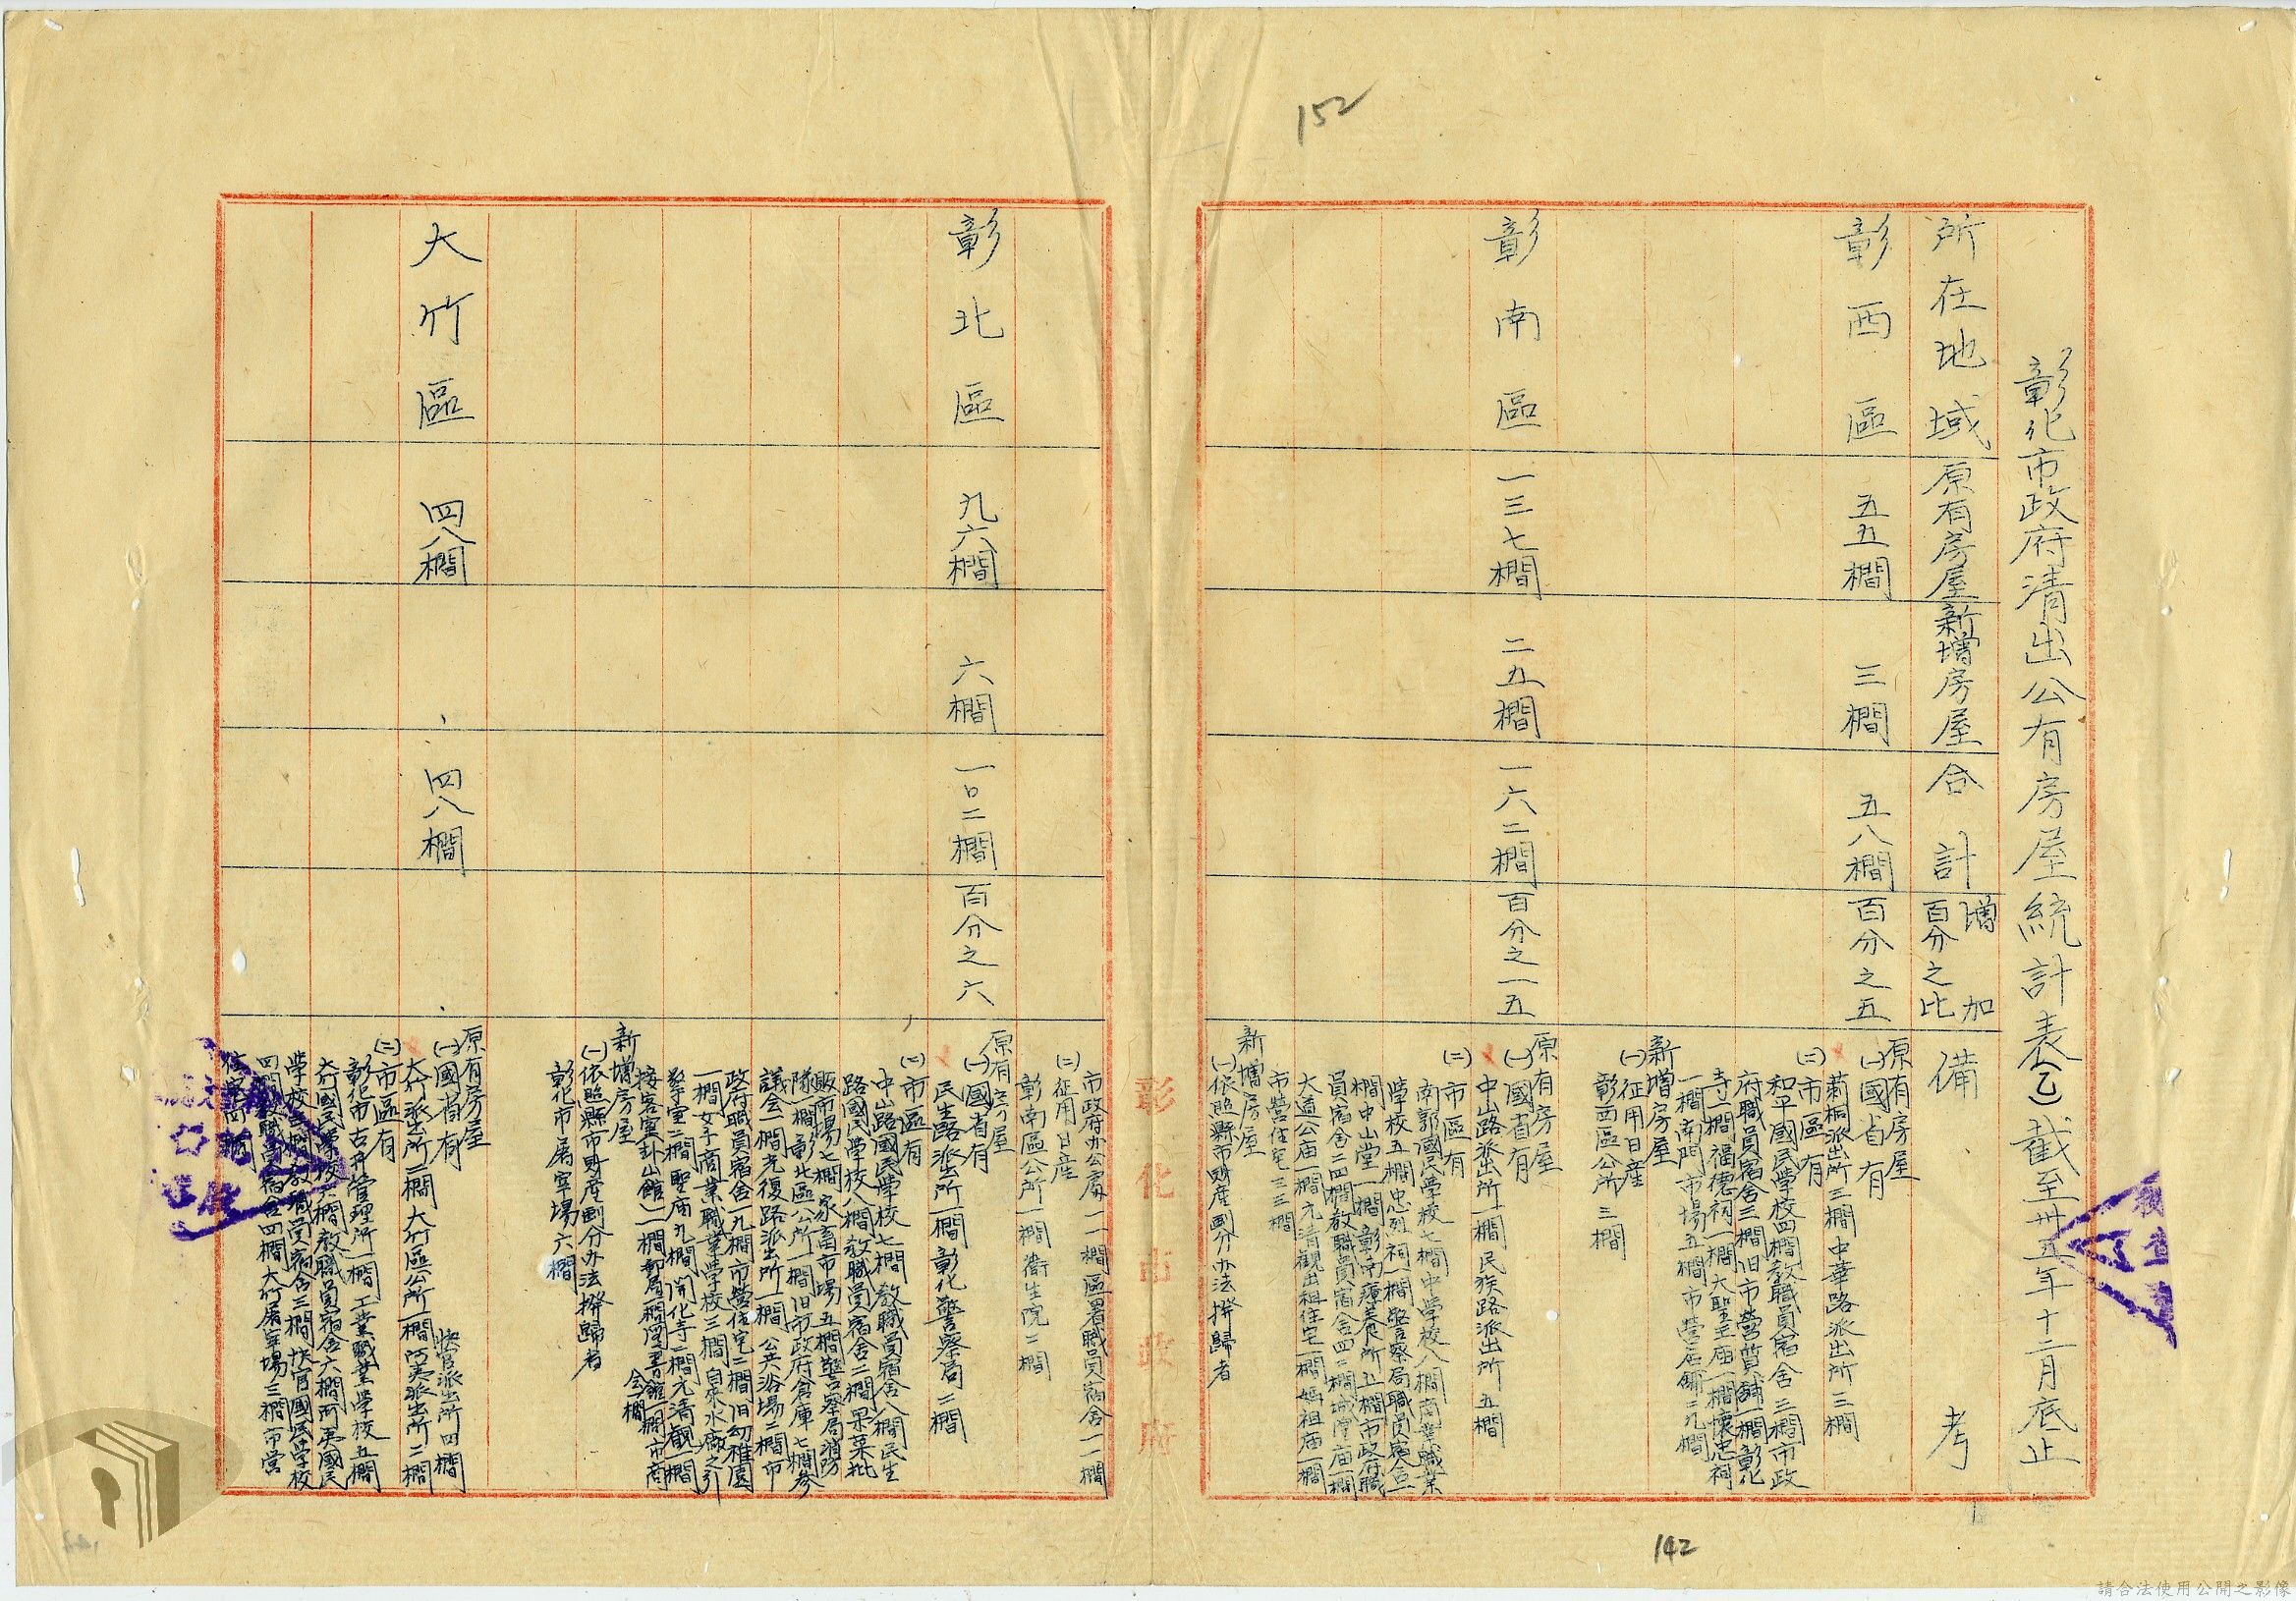 152
彰化市政府清出公有房屋統計表(乙)截至卅五年十二月底止
所在地域
原有房屋
新增房屋
合計
增加
百分之比
備考
彰西區
五五棚
三棚
五八棚
百分之五
原有房屋
(一)國省有
莿桐派出所三棚中華路派出所三棚
(二)市區有
和平國民學校四棚教職員宿舍三棚市政
府職員宿舍三棚旧市營質舖一棚彰化
寺一棚福德祠一棚大聖王庙一棚懷忠祠
一棚南門市場五棚市營店舖二九棚
新增房屋
(一)征用日產
彰西區公所三棚
彰南區
一三七棚
二五棚
一六二棚
百分之一五
原有房屋
(一)國省有
中山路派出所一棚民族路派出所五棚
(二)市區有
南郭國民學校七棚中學校八棚商業職業
學校五棚忠烈祠一棚警察局職員宿舍三
棚中山堂一棚彰南療養所五棚市政府職
員宿舍二四棚教職員宿舍四二棚城隍庙一棚
大道公庙一棚元清觀出租住宅一棚媽祖庙一棚
市營住宅三三棚
新增房屋
(一)依照縣市財產劃分办法撥歸者
市政府办公處一一棚區署職員宿舍一一棚
(二)征用日產
彰南區公所一棚衛生院二棚
彰北區
九六棚
六棚
一〇二棚
百分之六
原有房屋
(一)國省有
民生路派出所一棚彰化警察局二棚
(二)市區有
中山路國民學校七棚教職員宿舍八棚民生
路國民學校八棚教職員宿舍二棚果菜批
販市場七棚家畜市場五棚警察局消防
隊一棚彰北區公所一棚旧市政府倉庫七棚參
議会一棚光復路派出所一棚公共浴場二棚市
政府職員宿舍一九棚市營住宅二棚旧幼稚園
一棚女子商業職業學校三棚自來水廠之引
擎室二棚聖庙九棚開化寺一棚元清觀一棚
接客室卦山館一棚郵局一棚圖書館一棚市商
会一棚
新增房屋
(一)依照縣市財產劃分办法撥歸者
彰化市屠宰場六棚
大竹區
四八棚
四八棚
原有房屋
(一)國省有
快官派出所四棚
大竹派出所二棚大竹區公所一棚阿夷派出所二棚
(二)市區有
彰化市古井管理所一棚工業職業學校五棚
大竹國民學校六棚教職員宿舍六棚阿夷國民
學校三棚教職員宿舍三棚快官國民學校
四棚教職員宿舍四棚大竹屠宰場三棚市營
彰化市政府
142
請合法使用公開之影像